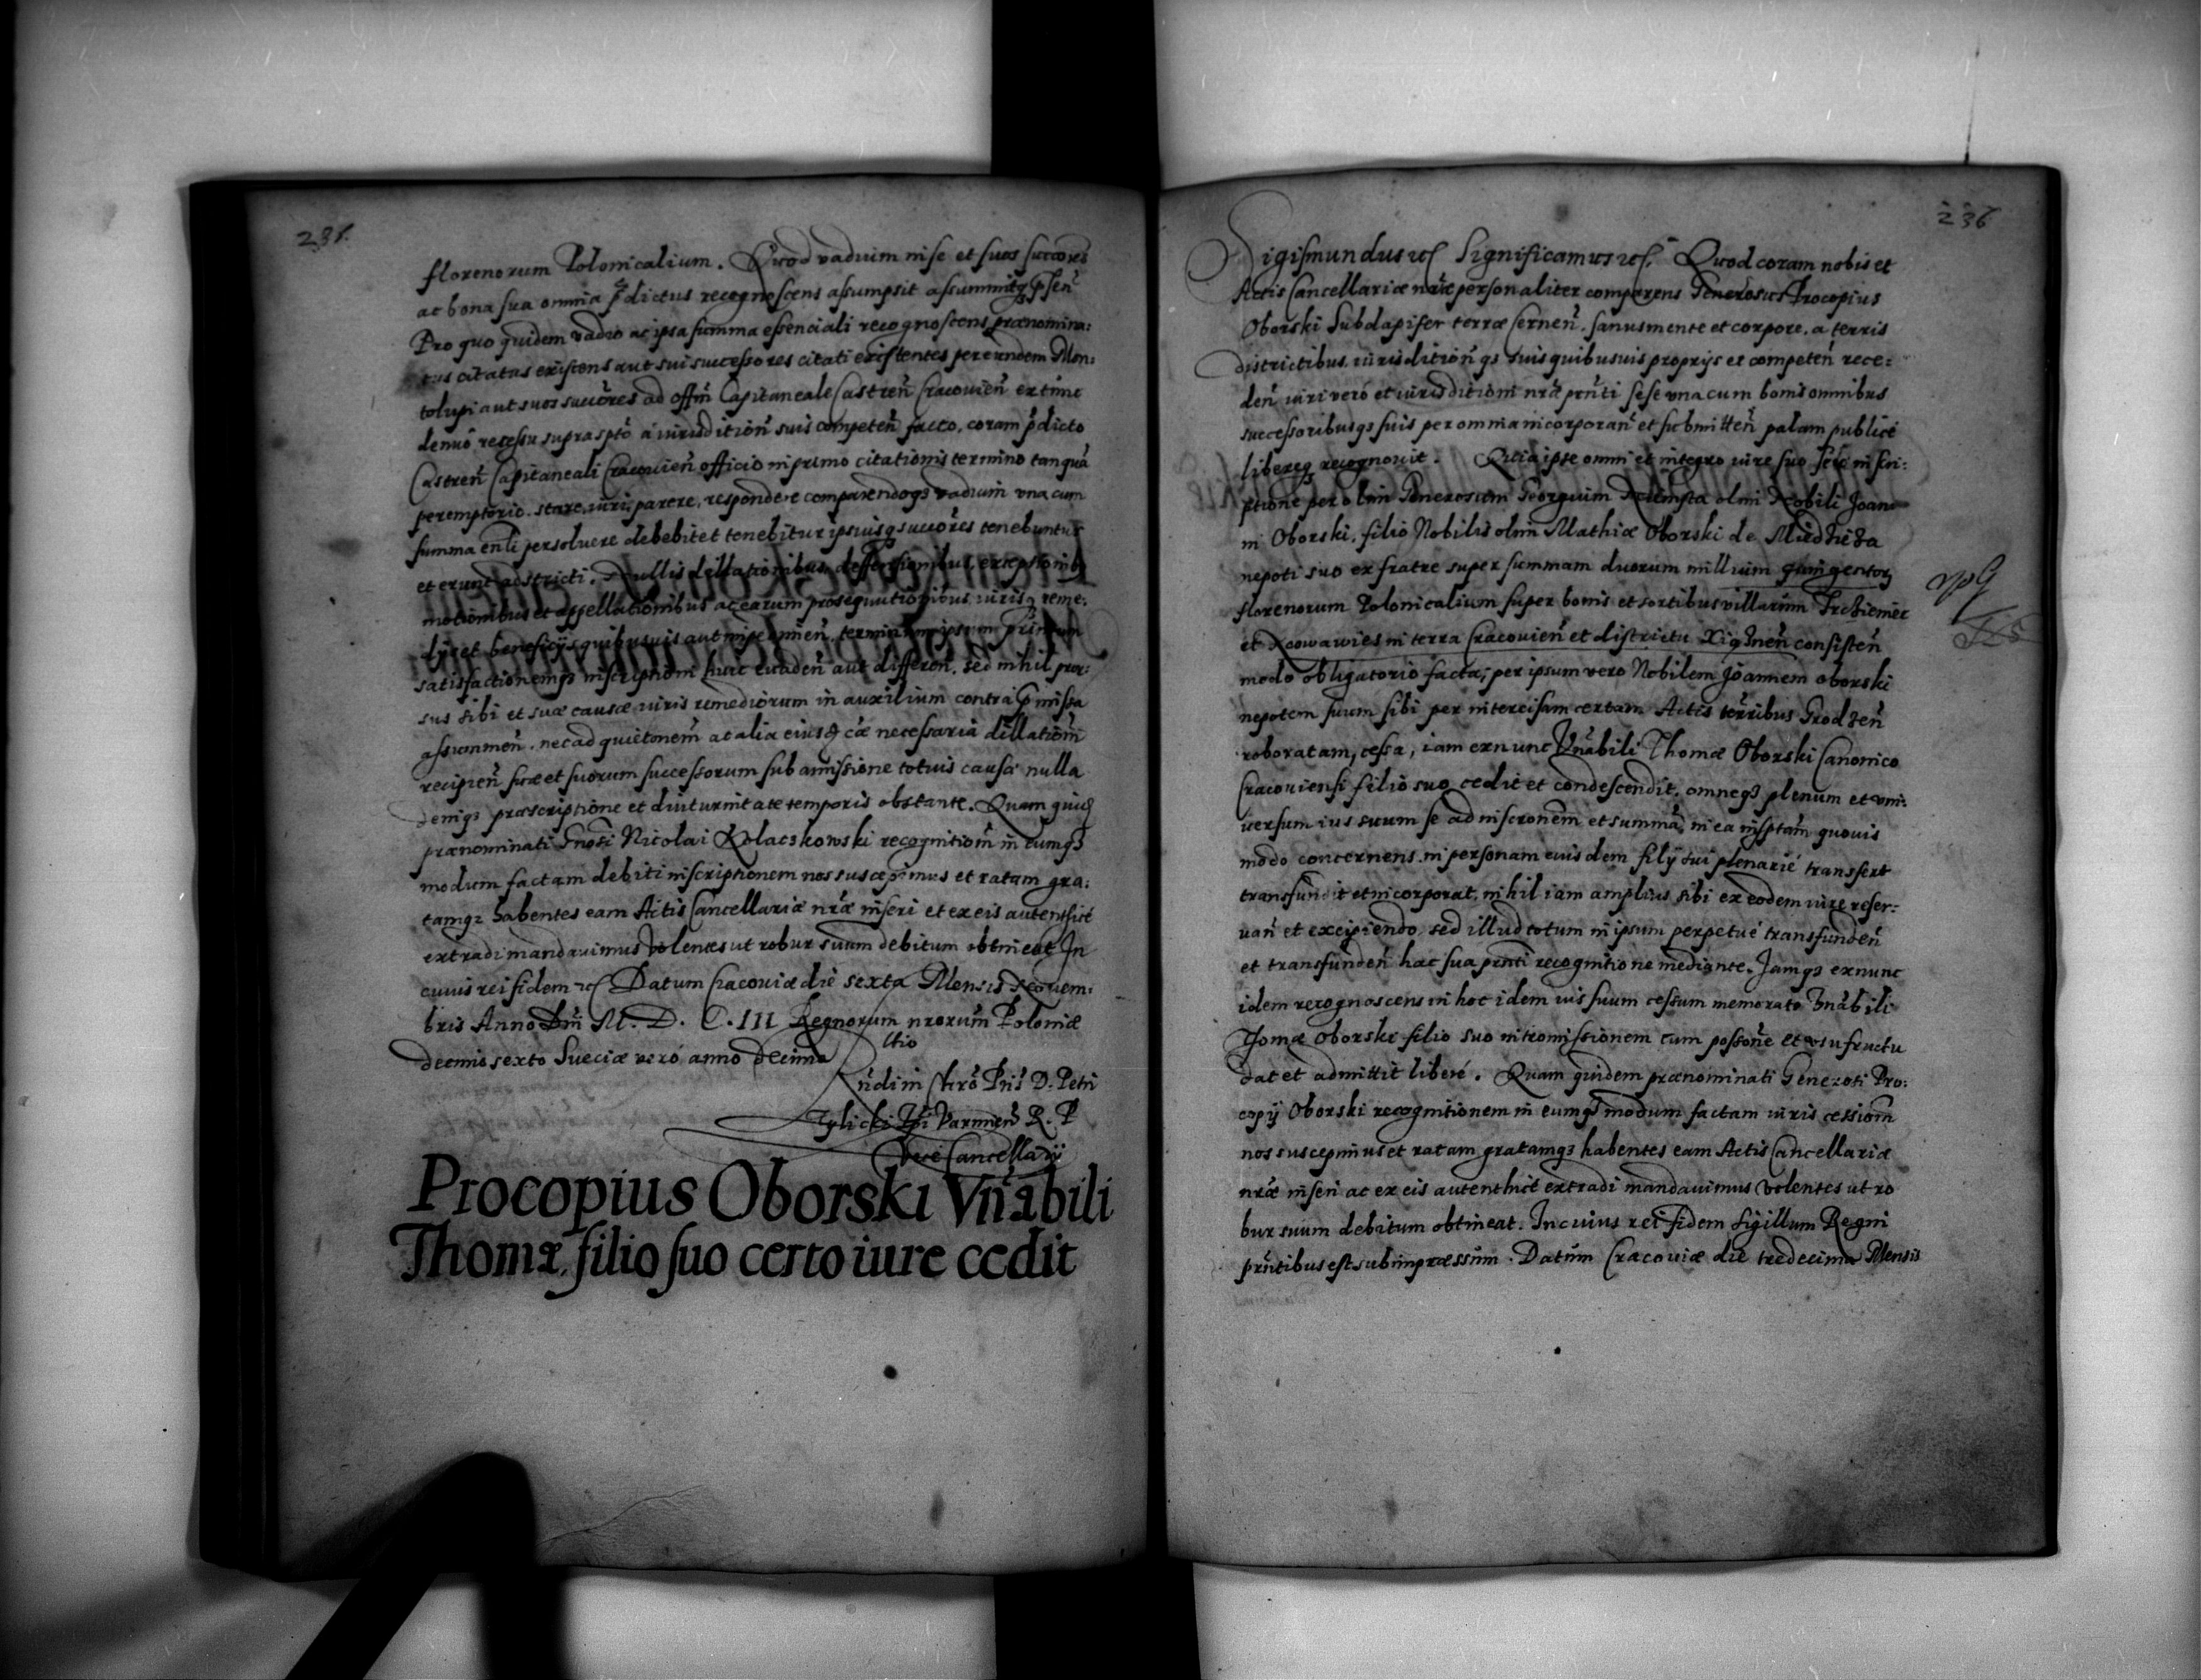 235.
florenorum Polonicalium. Quod vadium in se et suos succores
ac bona sua omnia p̃dictus recognoscens assumpsit assummitq; p̃sen̄
Pro quo quidem vadio ac ipsa summa essenciali recognoscens prænomina:
tus citatus existens aut sui successores citati existentes per eundem Mon:
tolupi aut suos succōres ad offm̄ Capitaneale Castren̄ Cracouien̄ ex tunc
denuò recessu suprasptō à iurisdition̄ suis competen̄ facto, coram p̃dicto
Castren̄ Capitaneali Cracouien̄ officio in primo citationis termino tanquā
peremptorio stare, iuri parere, respondere comparendoq; vadium una cum
summa en̄li persoluere debebit et tenebitur ipsiusq; succōres tenebuntur
et erunt adstricti. Nullis dellationibus, deffensionibus, exceptionib;
motionibus et appellationibus ac earum prosequutionibus iurisq; reme:
dijs et beneficijs quibusuis aut terminum ipsum
satisfactionemq; inscriptioni huic euaden̄ aut differen̄. sed nihil pror:
sus sibi et suæ causæ iuris remediorum in auxilium contra p̃missa
assummen̄. nec ad quietonem̄ at alia eiusd̄ cæ necessaria dillationm̄
recipien̄ suæ et suorum successorum sub amissione totius causæ nulla
deniq; præscriptione et diuturnitate temporis obstante. Quam quid̄
prænominati Gnōsi Nicolai Kolaczkowski recognitionm̄ in eumq;
modum factam debiti inscriptionem nos suscepimus et ratam gra:
tamq; habentes eam Actis Cancellariæ nr̄æ inseri et ex eis autenthicè
extradi mandauimus Volentes ut robur suum debitum obtineat In
cuius rei fidem etc̄ Datum Cracouiæ die sexta Mensis Nouem:
bris Anno Dn̄i M. D. C. III Regnorum nrorum Poloniæ
decimo sexto Sueciæ verò anno decimo
ltio
Rn̄di in Chrō Pris D. Petri
Tylicki Ep̄i Varmien̄ R. P
Vice Cancellarij
Procopius Oborski Vn̄abili
Thomæ filio suo certo iure cedit
236
Sigismundus etc̄ Significamus etc̄. Quod coram nobis et
Actis Cancellariæ nr̄æ personaliter comparens Generosus Procopius
Oborski Subdapifer terræ Cernen̄. sanus mente et corpore, a terris
districtibus, iurisdition̄q; suis quibusuis proprijs et competen̄ rece:
den̄ iuri verò et iurisditioni nrǣ prn̄ti sese una cum bonis omnibus
successoribusq; suis per omnia incorporan̄ et submitten̄ palam publicè
libereq; recognouit. Quia ipse omni et integro iure suo sese in scri:
ptione per olim Generosum Georgium Niemsta olim Nobili Joan:
ni Oborski, filio Nobilis olim Mathiæ Oborski de
nepoti suo ex fratre super summam duorum millium quingentor̄
florenorum Polonicalium super bonis et sortibus villarum
et in terra Cracouien̄ et districtu Xiąznen̄ consisten̄
modo obligatorio facta, per ipsum vero Nobilem Joannem Oborski
nepotem suum sibi per intercisam certam Actis terribus Grodzen̄
roboratam, cessa, iam ex nunc Vn̄abili Thomæ Oborski Canonico
Cracouiensi filio suo cedit et condescendit, omneq; plenum et vni:
uersum ius suum se ad inscronem̄ et summā in ea insptam̄ quouis
modo concernens in personam eiusdem filij sui plenariè transfert
transfundit et incorporat, nihil iam amplius sibi ex eodem iure reser:
uan̄ et excipiendo, sed illud totum in ipsum perpetuè transfunden̄
et transfunden̄ hac sua prn̄ti recognitione mediante. Jamq; ex nunc
idem recognoscens in hoc idem ius suum cessum memorato Vn̄abili
Thomæ Oborski filio suo intromissionem cum possōne et usufructu
dat et admittit liberè. Quam quidem prænominati Generosi Pro:
copij Oborski recognitionem in eumq; modum factam iuris cessionm̄
nos suscepimus et ratam gratamq; habentes eam Actis Cancellariæ
nræ inseri ac ex eis autenthicè extradi mandauimus Volentes ut ro
bur suum debitum obtineat. In cuius rei fidem Sigillum Regni
prn̄tibus est subimpræssum. Datum Cracouiæ die tredecima Mensis